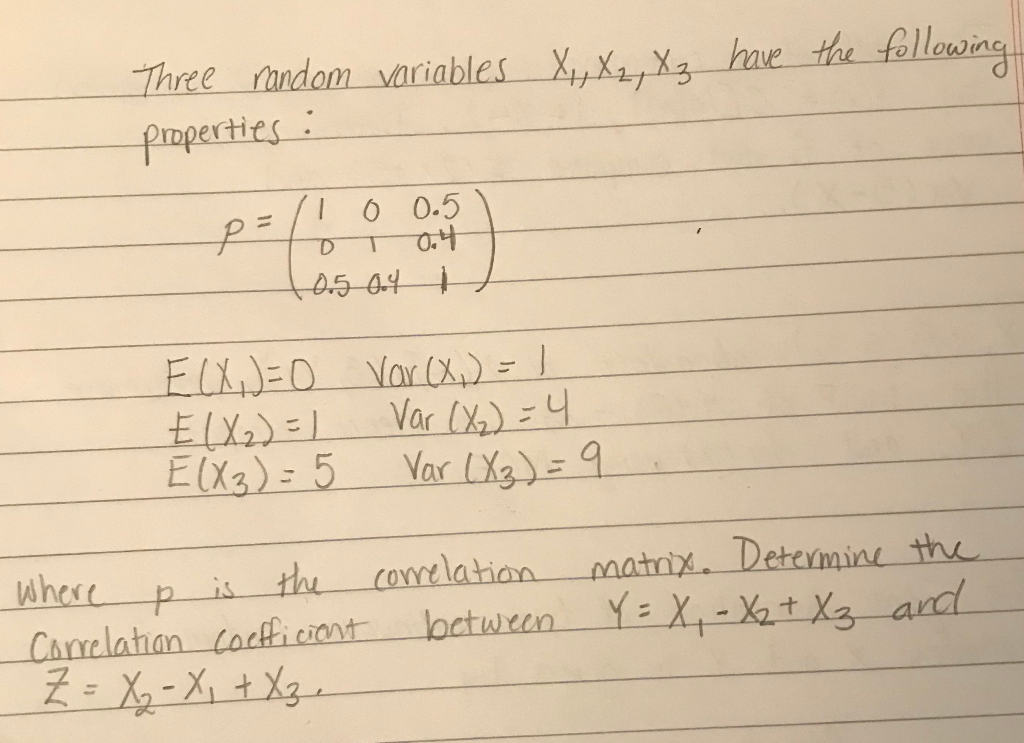 Three random variables X₁, X₂, X₃ have the following
properties :
p = ( 1 0 0.5
0 1 0.4
0.5 0.4 1 )
E(X₁)=0 Var(X₁) = 1
E(X₂)=1 Var(X₂) = 4
E(X₃) = 5 Var(X₃) = 9
where p is the correlation matrix. Determine the
Correlation coefficient between Y = X₁ - X₂ + X₃ and
Z = X₂ - X₁ + X₃.